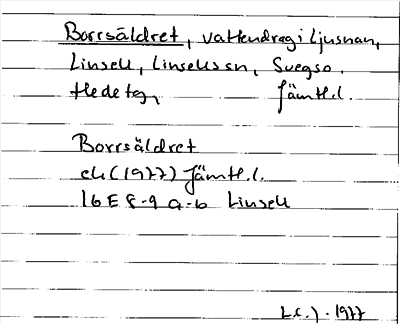 Borrsäldret, vattendrag i Ljusnan,
Linsell, Linsells sn, Svegs o.
Hede tg, Jämtl.l.
Borrsäldret
ek (1977) Jämtl.l.
16E 8-9 a-b Linsell
1977